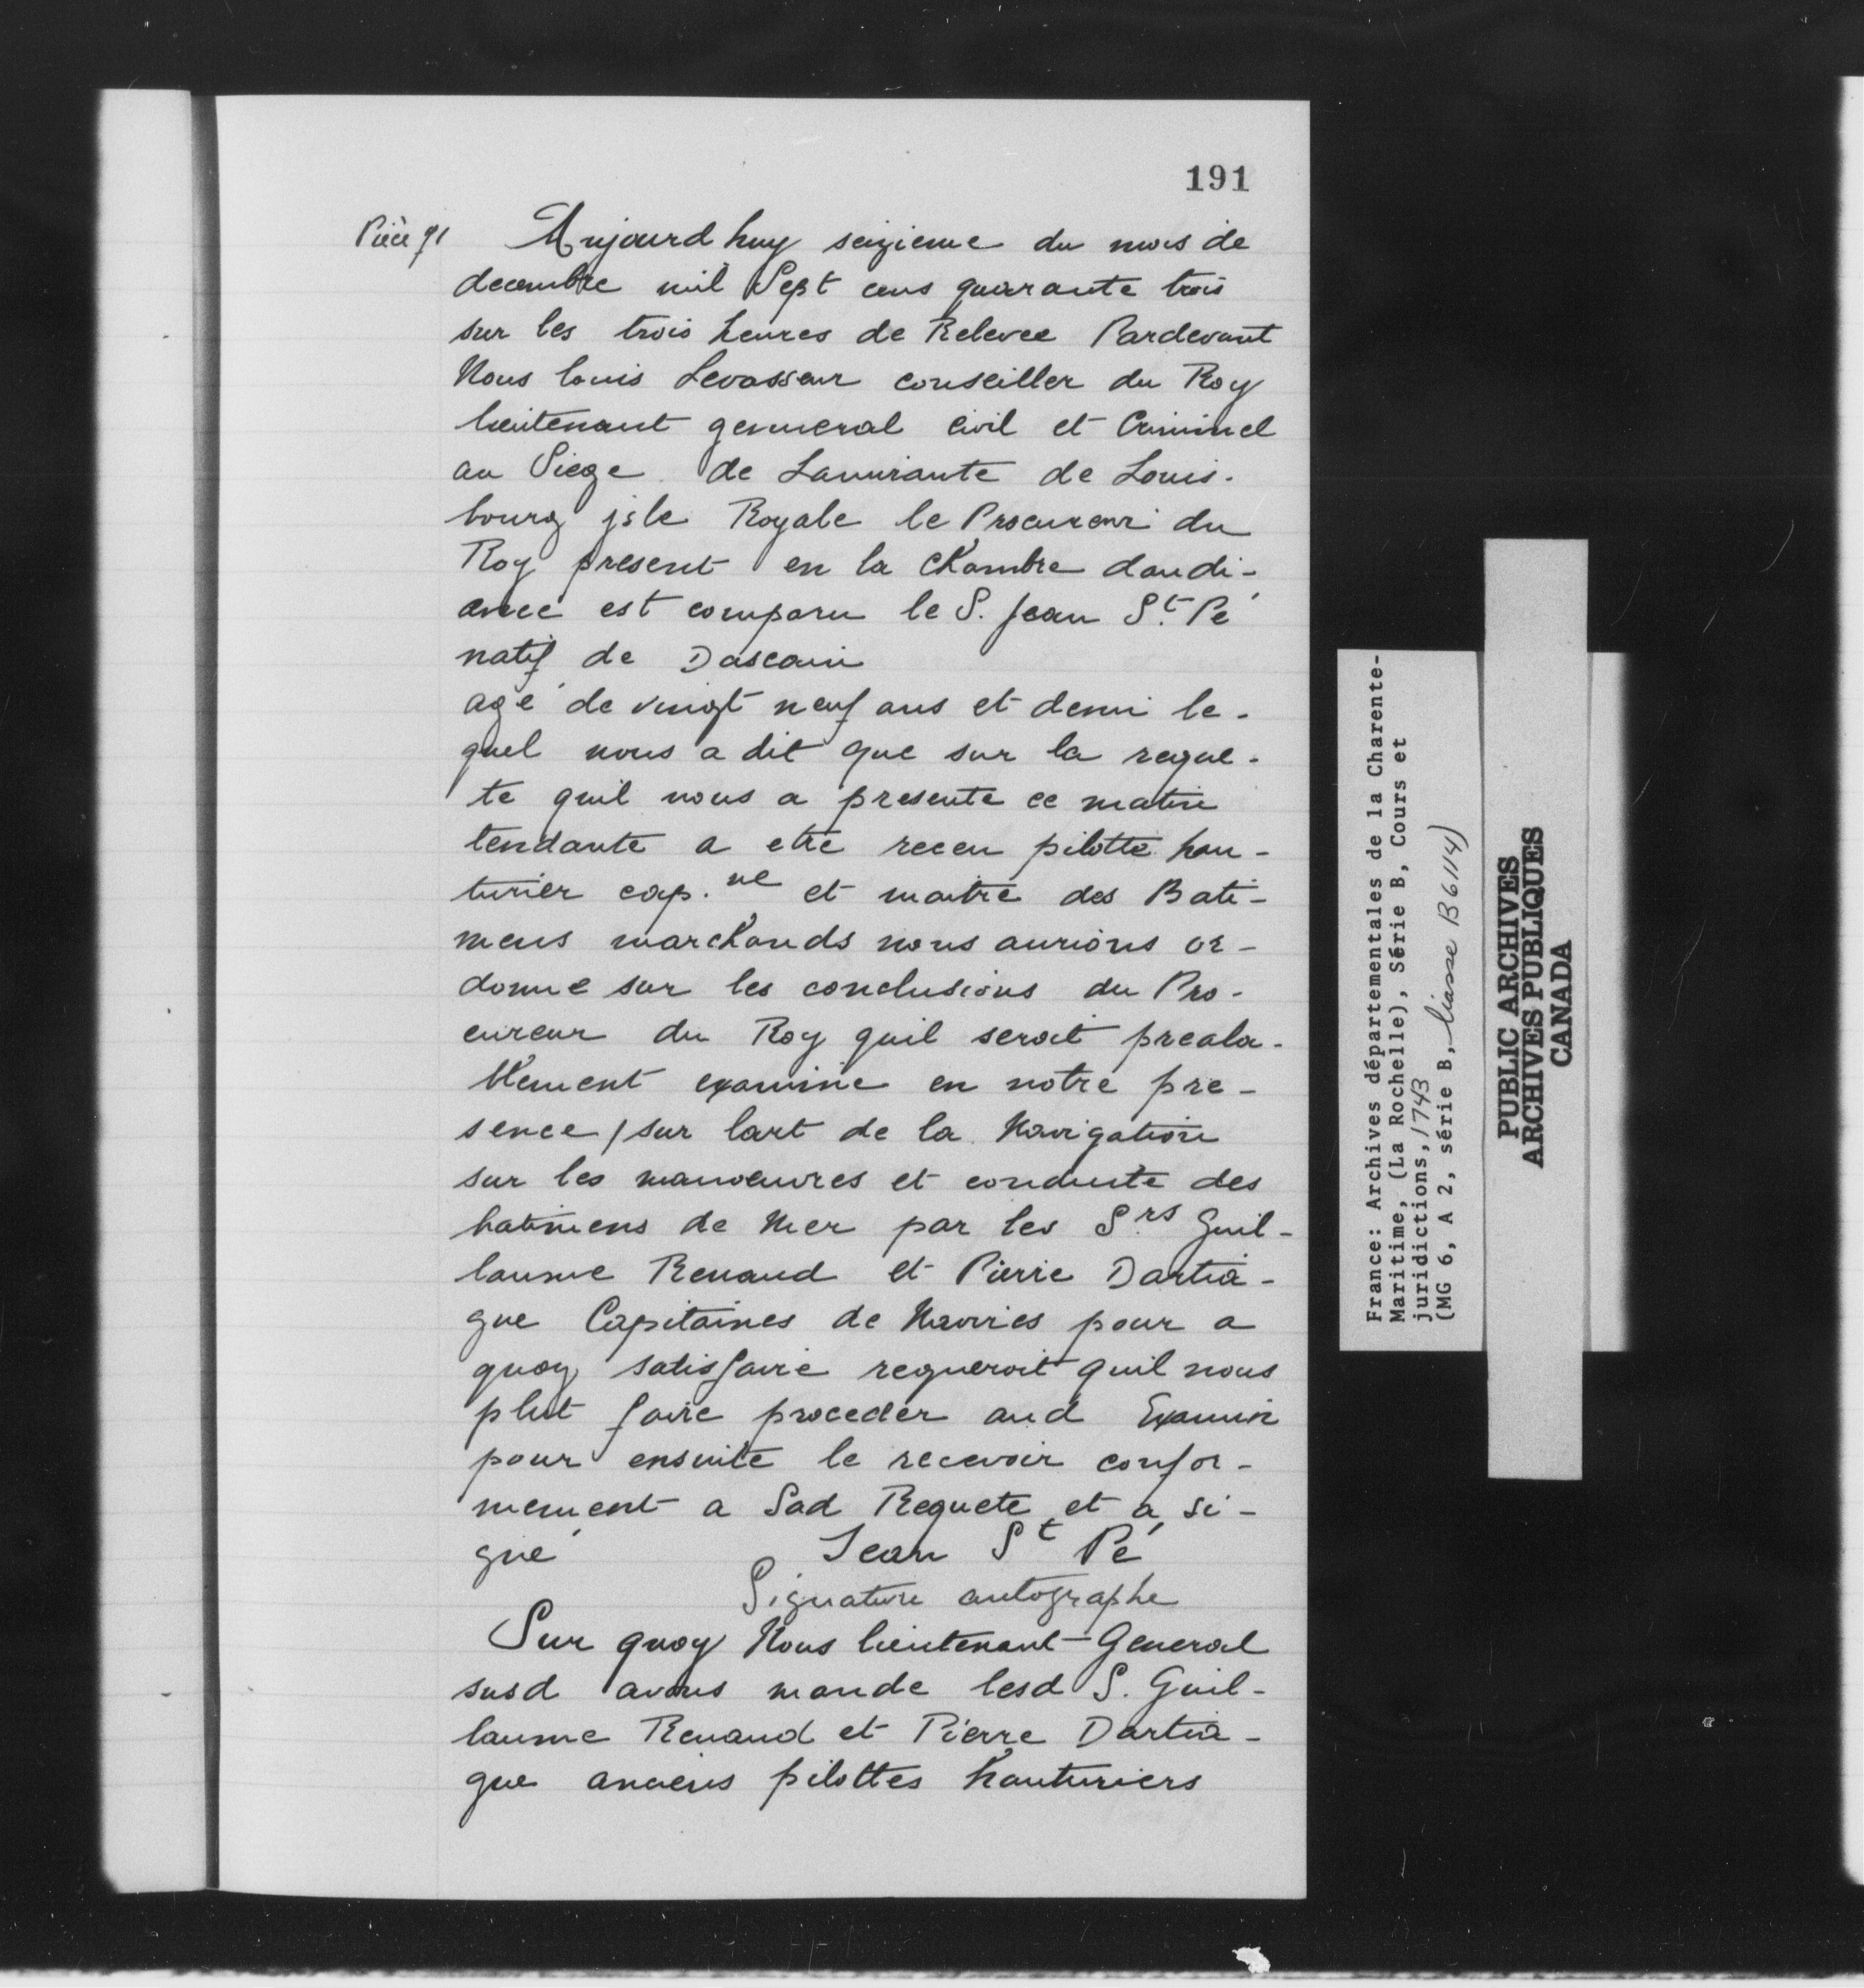 191
Pièce 91
Aujourd huy seizieme du mois de
decembre mil Sept cens quarante trois
sur les trois heures de Relevee Pardevant
Nous louis Levasseur conseiller du Roy
lieutenant genneral civil et Criminel
au Siege de Lamirante de Louis-
bourg jsle Royale le Procureur du
Roy present en la chambre daudi-
ance est comparu le S. Jean St. Pé
natif de Dascain
agé de vingt neuf ans et demi le-
quel nous a dit que sur la reque-
te quil nous a presente ce matin
tendante a etre receu pilotte hau-
turier cap.ne et maitre des Bati-
mens marchands nous aurions or-
donne sur les conclusions du Pro-
cureur du Roy quil serait preala-
blement examine en notre pre-
sence / sur lart de la Navigation
sur les manoeuvres et conduite des
batimens de Mer par les S.rs Guil-
laume Renaud et Pierre Dartia-
gue Capitaines de Navires pour a
quoy satisfaire requeroit quil nous
plut faire proceder aud Examin
pour ensuite le recevoir confor-
mement a Sad Requete et a si-
gné Jean St Pé
Signature autographe
Sur quoy Nous lieutenant General
susd avons mande lesd S. Guil-
laume Renaud et Pierre Dartia-
gue anciens pilottes hauturiers
France: Archives départementales de la Charente-
Maritime, (La Rochelle), Série B, Cours et
juridictions, 1743
(MG 6, A 2, série B, liasse B6114)
PUBLIC ARCHIVES
ARCHIVES PUBLIQUES
CANADA